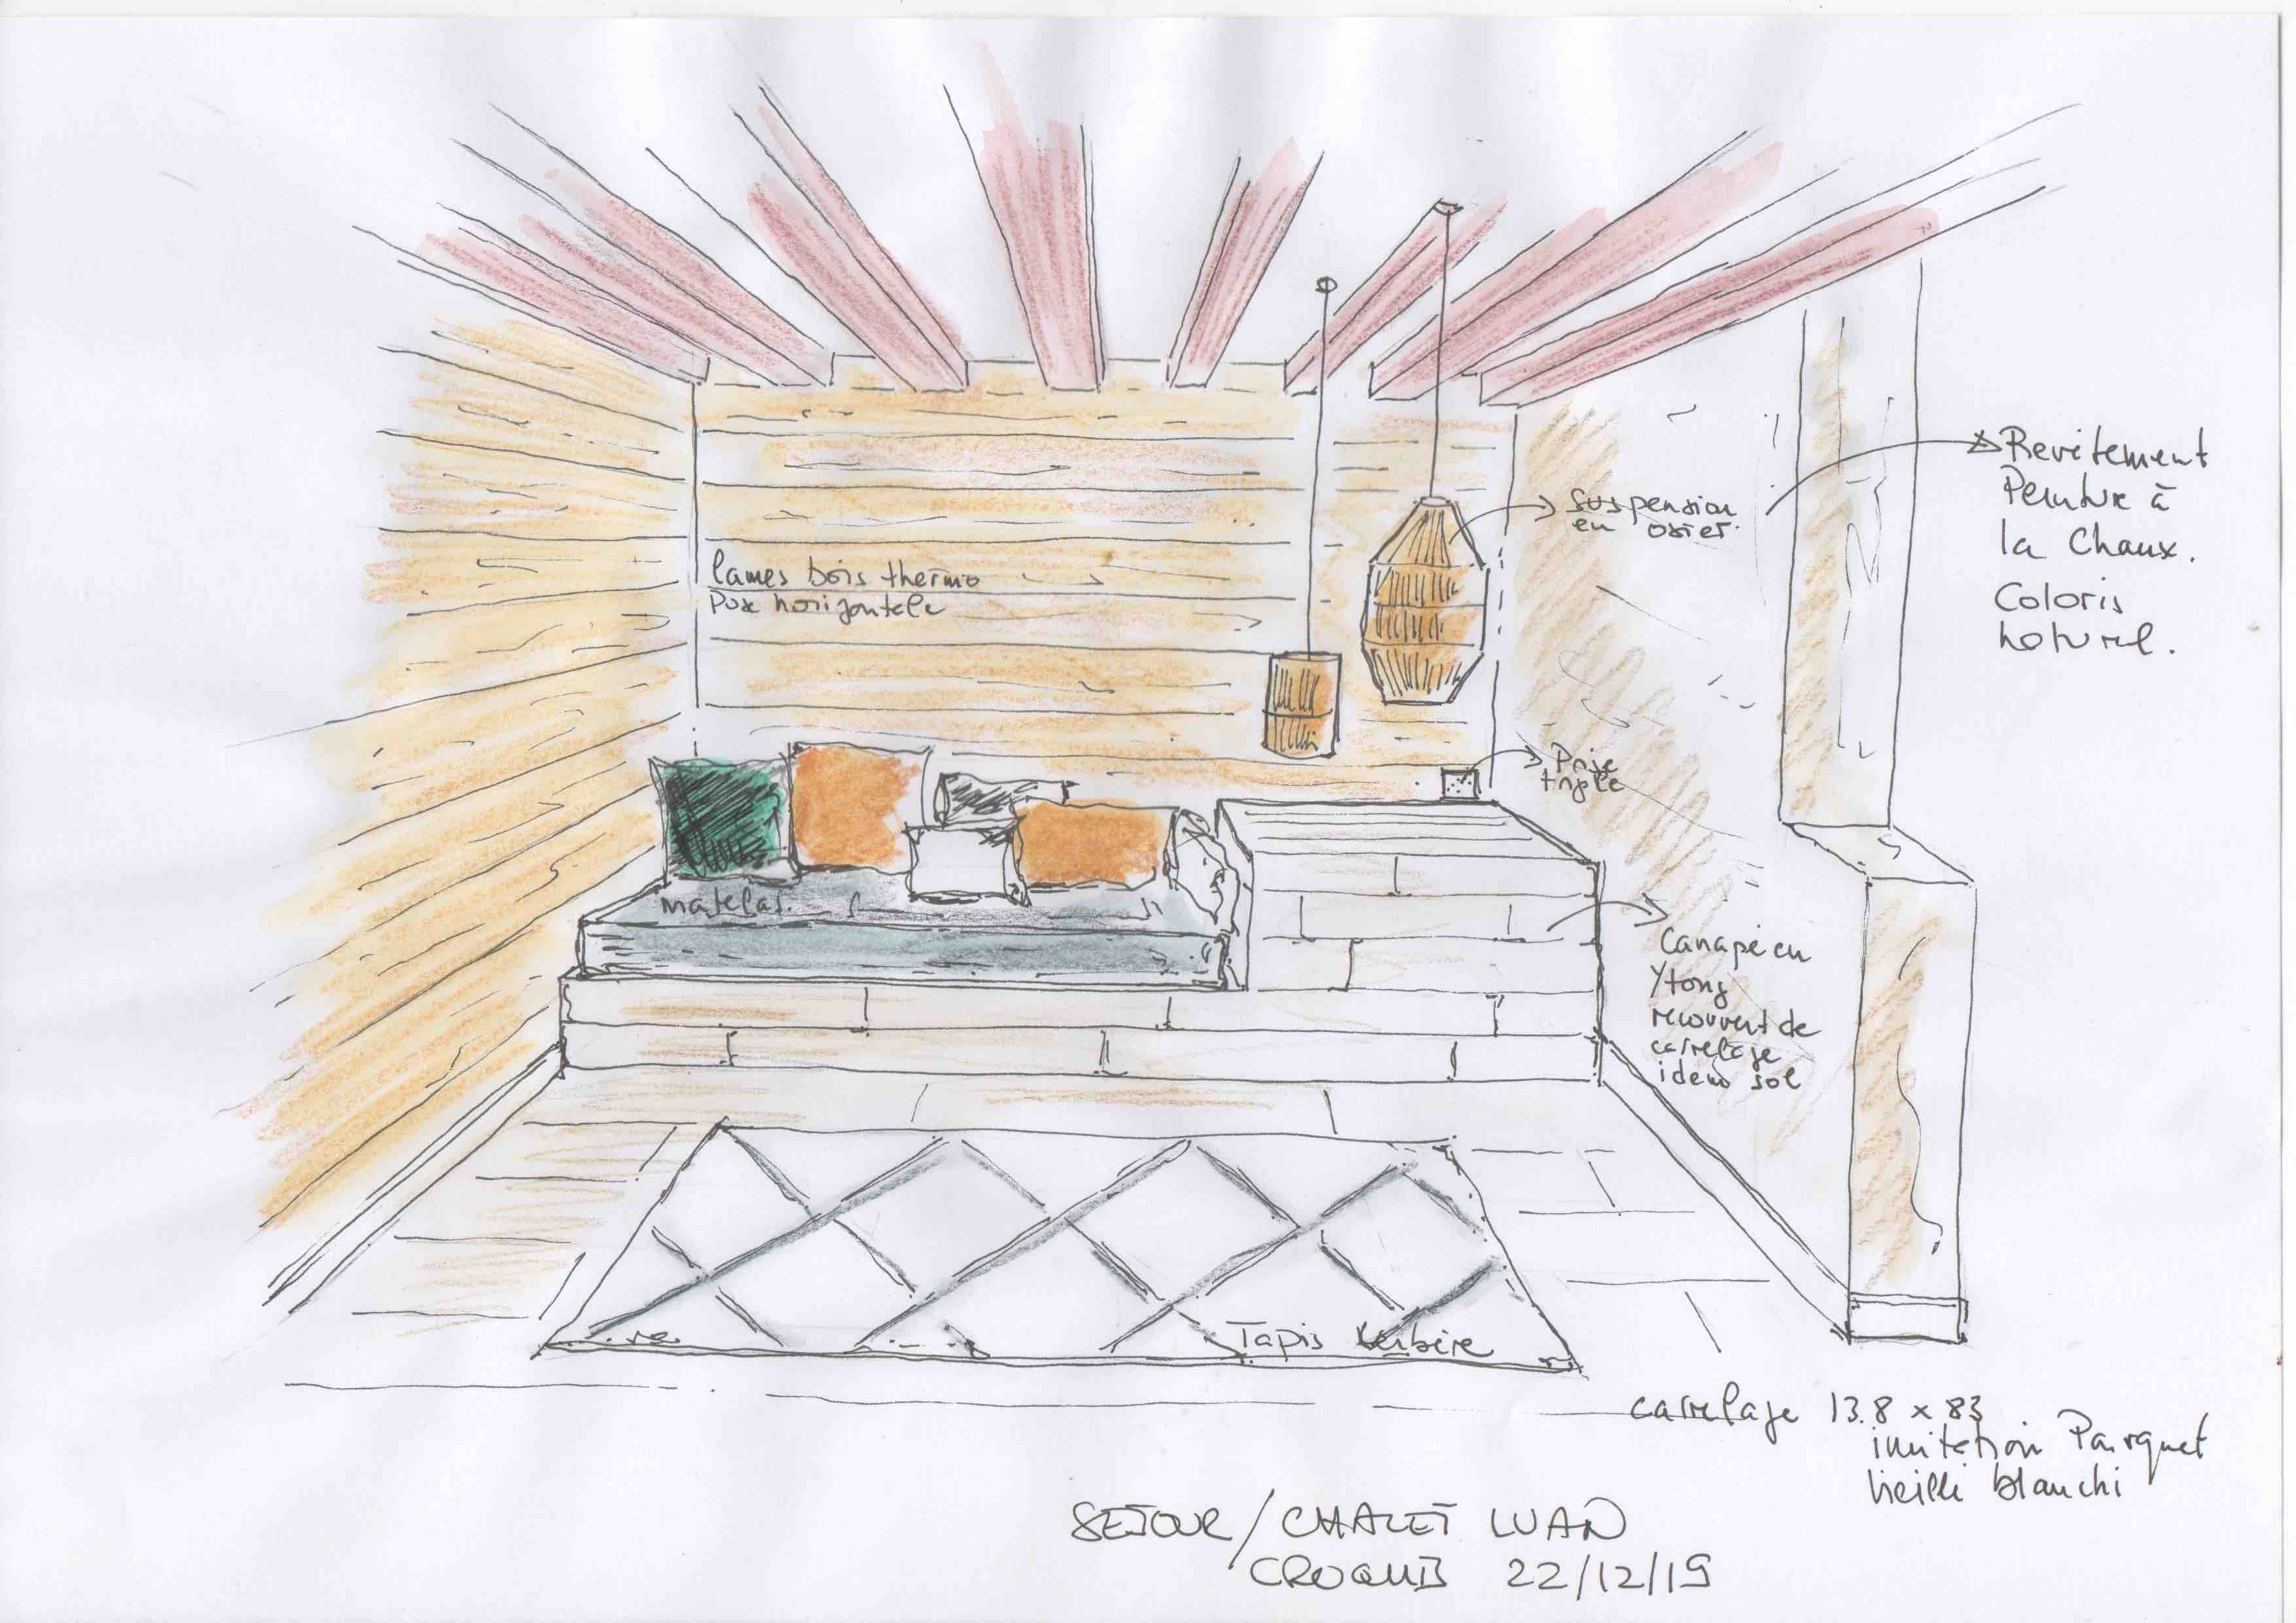 Revêtement
Peinture à
la Chaux.
Coloris
naturel.
suspension
en osier.
lames bois thermo
Pose horizontale
Prise
triple
matelas.
Canapé en
Ytong
recouvert de
carrelage
idem sol
Tapis Berbère
carrelage 13.8 x 83
imitation Parquet
vieilli blanchi
SEJOUR / CHALET LUAN
CROQUIS 22/12/19